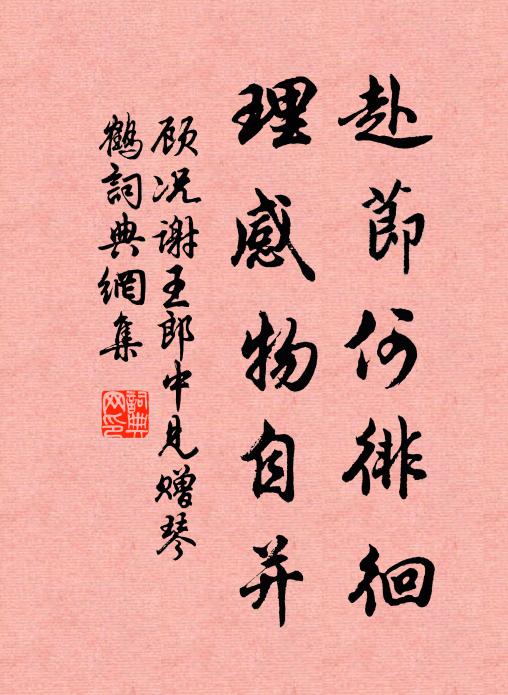 赴節何徘徊
理感物自并
顾况谢王郎中见赠琴
鶴詞典網集
詞典
网印